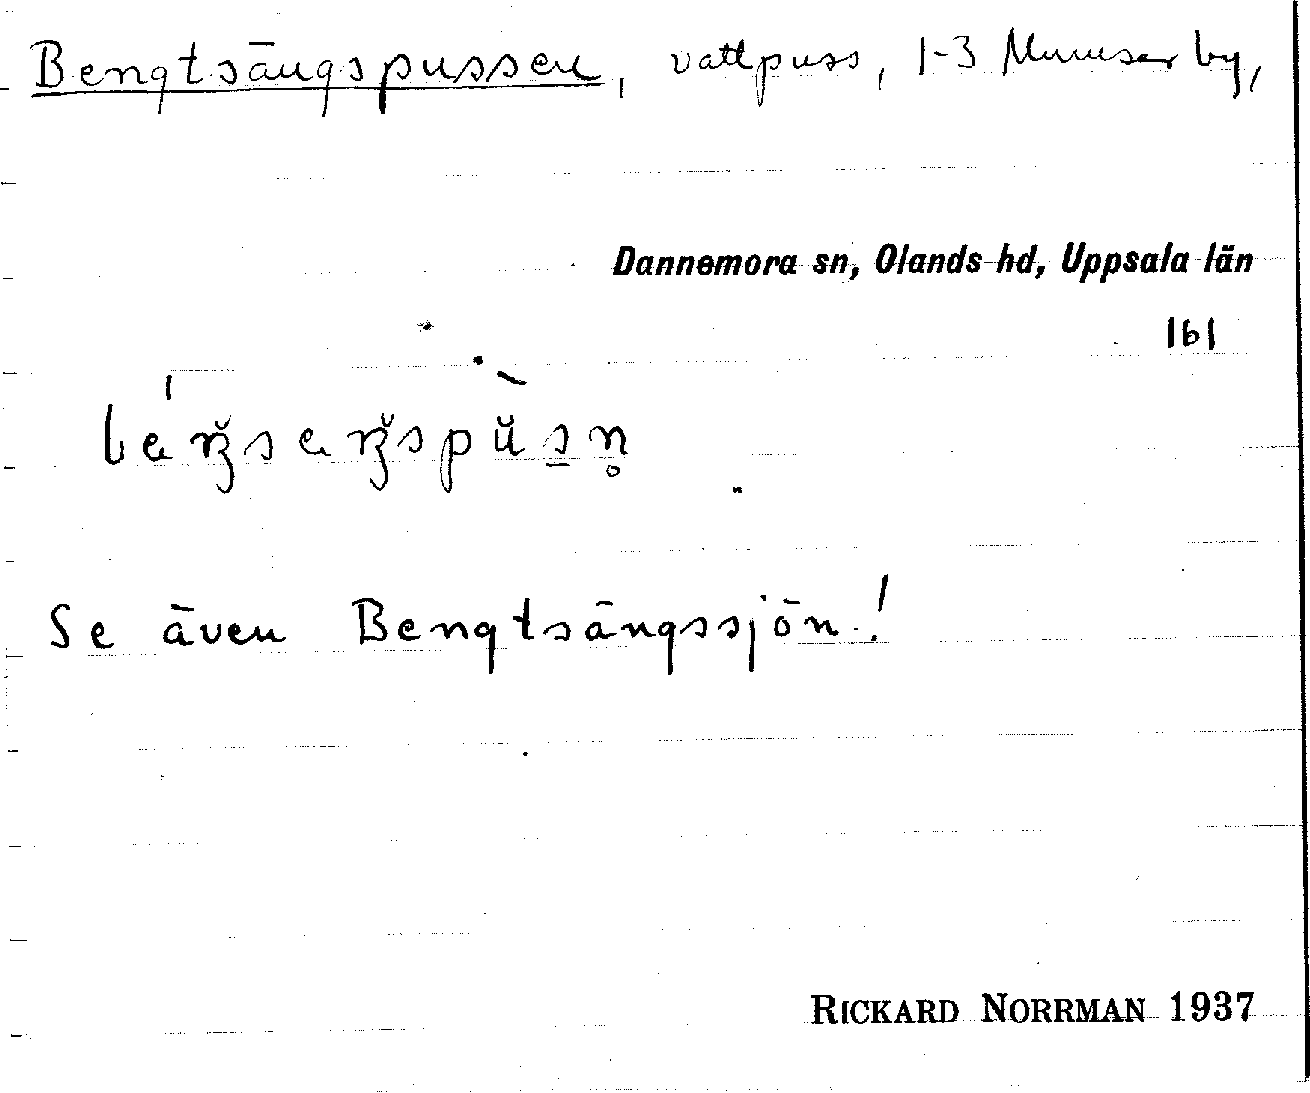 Bengtsängspussen, vattpuss, 1-3 Munsar by,
Dannemora sn, Olands hd, Uppsala län
161
Se även Bengtsängssjön!
RICKARD NORRMAN 1937